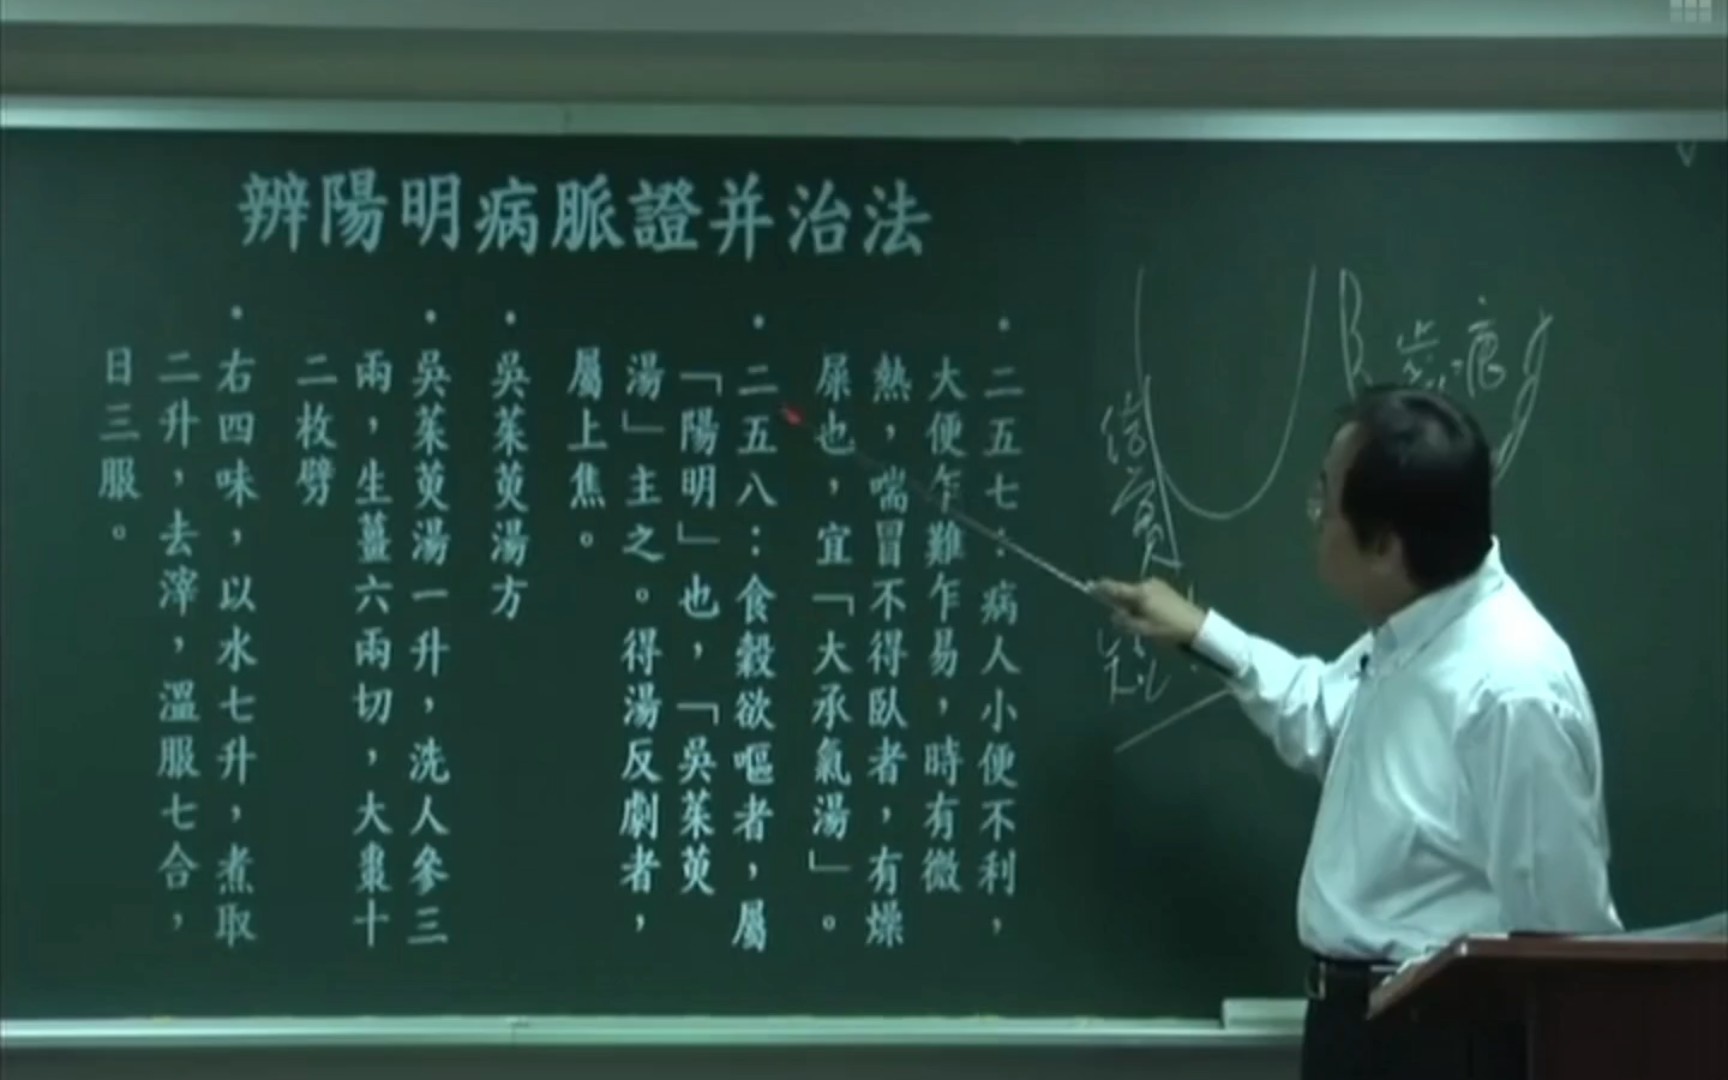 辨陽明病脈證并治法
・二五七：病人小便不利，
大便乍難乍易，時有微
熱，喘冒不得臥者，有燥
屎也，宜「大承氣湯」。
・二五八：食穀欲嘔者，屬
「陽明」也，「吳茱萸
湯」主之。得湯反劇者，
屬上焦。
・吳茱萸湯方
・吳茱萸湯一升，洗人參三
兩，生薑六兩切，大棗十
二枚劈
・右四味，以水七升，煮取
二升，去滓，溫服七合，
日三服。
齒痕